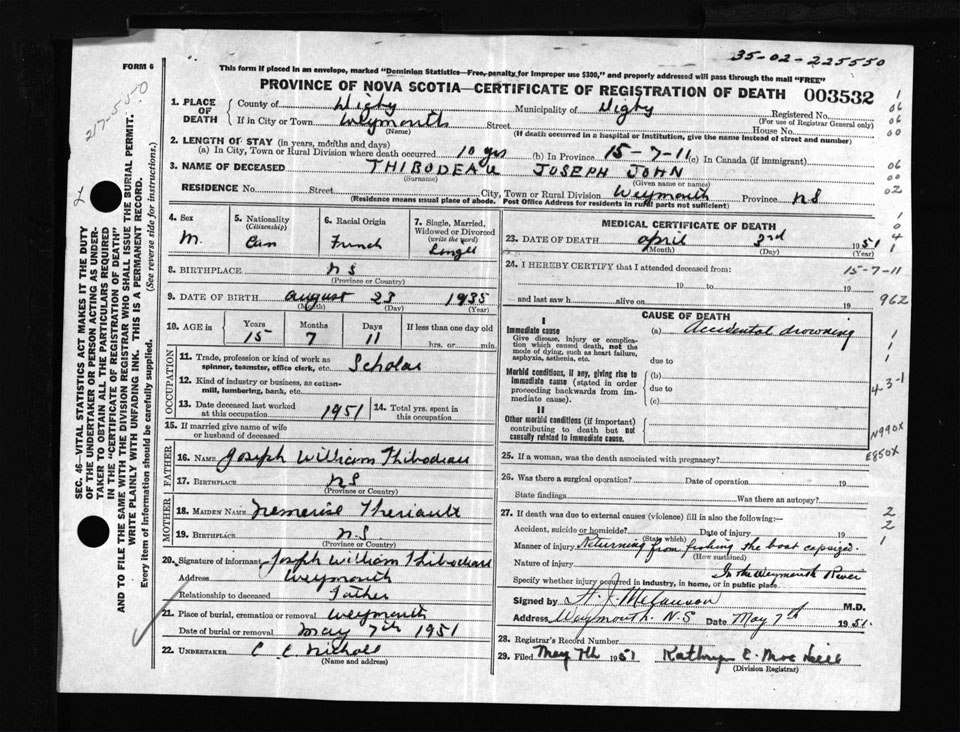 35-02-225550
FORM 6
This form if placed in an envelope, marked "Dominion Statistics—Free, penalty for improper use $300," and properly addressed will pass through the mail "FREE"
PROVINCE OF NOVA SCOTIA—CERTIFICATE OF REGISTRATION OF DEATH 003532
217-550
1. PLACE OF DEATH
County of Digby Municipality of Digby Registered No.
(For use of Registrar General only)
If in City or Town Weymouth Street House No.
(Name) (If death occurred in a hospital or institution, give the name instead of street and number)
2. LENGTH OF STAY (in years, months and days)
(a) In City, Town or Rural Division where death occurred 10 yrs (b) In Province 15-7-11 (c) In Canada (if immigrant)
3. NAME OF DECEASED THIBODEAU JOSEPH JOHN
(Surname) (Given name or names)
RESIDENCE No. Street City, Town or Rural Division Weymouth Province NS
(Residence means usual place of abode. Post Office Address for residents in rural parts not sufficient)
1
06
06
00
06
00
02
4. Sex
M.
5. Nationality
(Citizenship)
Can
6. Racial Origin
French
7. Single, Married,
Widowed or Divorced
(write the word)
Single
8. BIRTHPLACE NS
(Province or Country)
9. DATE OF BIRTH August 23 1935
(Month) (Day) (Year)
10. AGE in Years Months Days If less than one day old
15 7 11 hrs. or min.
OCCUPATION
11. Trade, profession or kind of work as
spinner, teamster, office clerk, etc. Scholar
12. Kind of industry or business, as cotton-
mill, lumbering, bank, etc.
13. Date deceased last worked
at this occupation 1951
14. Total yrs. spent in
this occupation
15. If married give name of wife
or husband of deceased
FATHER
16. NAME Joseph William Thibodeau
17. BIRTHPLACE NS
(Province or Country)
MOTHER
18. MAIDEN NAME Theriault
19. BIRTHPLACE N.S
(Province or Country)
20. Signature of informant Joseph William Thibodeau
Address Weymouth
Relationship to deceased Father
21. Place of burial, cremation or removal Weymouth
Date of burial or removal May 7th 1951
22. UNDERTAKER C E Nicholl
(Name and address)
MEDICAL CERTIFICATE OF DEATH
23. DATE OF DEATH April 3rd 1951
(Month) (Day) (Year)
24. I HEREBY CERTIFY that I attended deceased from:
15-7-11
19 to 19
and last saw h alive on 19
962
CAUSE OF DEATH
I
Immediate cause
Give disease, injury or complica-
tion which caused death, not the
mode of dying, such as heart failure,
asphyxia, asthenia, etc.
(a) Accidental drowning
due to
Morbid conditions, if any, giving rise to
immediate cause (stated in order
proceeding backwards from im-
mediate cause).
(b)
due to
(c)
4-3-1
II
Other morbid conditions (if important)
contributing to death but not
causally related to immediate cause.
N990X
E850X
25. If a woman, was the death associated with pregnancy?
26. Was there a surgical operation? Date of operation 19
State findings Was there an autopsy?
27. If death was due to external causes (violence) fill in also the following:—
Accident, suicide or homicide? Date of injury 19
(State which)
Manner of injury Returning from fishing the boat capsized.
(How sustained)
Nature of injury In the Weymouth River
Specify whether injury occurred in industry, in home, or in public place
2
2
1
Signed by M.D.
Address Weymouth. N.S Date May 7th 1951.
28. Registrar's Record Number
29. Filed May 7th 1951 Kathryn E.
(Division Registrar)
SEC. 46—VITAL STATISTICS ACT MAKES IT THE DUTY
OF THE UNDERTAKER OR PERSON ACTING AS UNDER-
TAKER TO OBTAIN ALL THE PARTICULARS REQUIRED
IN THE "CERTIFICATE OF REGISTRATION OF DEATH"
AND TO FILE THE SAME WITH THE DIVISION REGISTRAR WHO SHALL ISSUE THE BURIAL PERMIT.
WRITE PLAINLY WITH UNFADING INK. THIS IS A PERMANENT RECORD.
Every item of information should be carefully supplied. (See reverse side for instructions.)